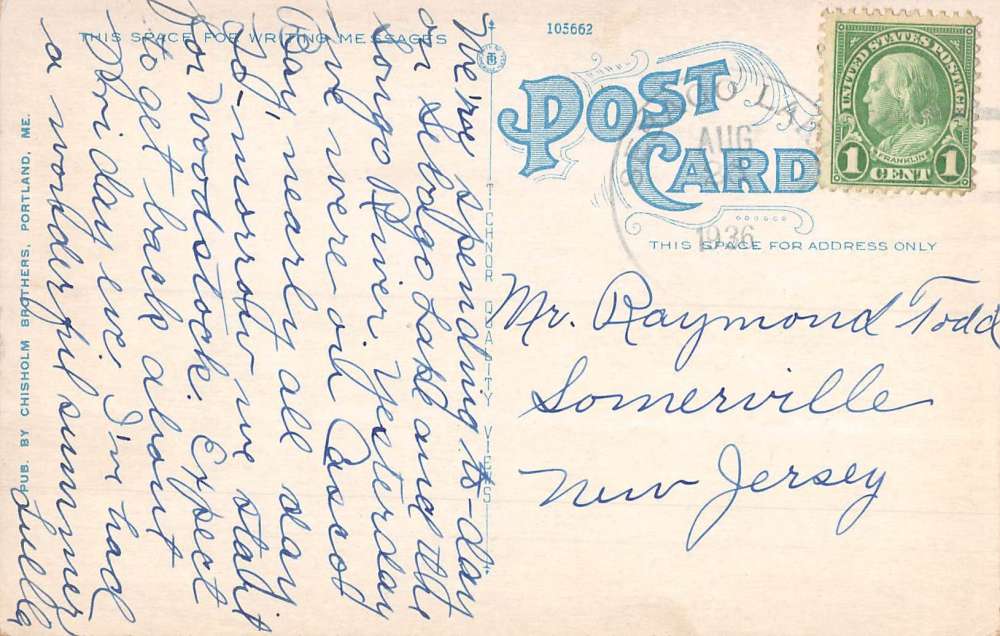 THIS SPACE FOR WRITING MESSAGES
105662
POST
CARD
UNITED STATES POSTAGE
FRANKLIN
1 CENT 1
AUG
1936
THIS SPACE FOR ADDRESS ONLY
We're spending to-day
on Sebago Lake and the
Songo River. Yesterday
we were on Casco
Bay nearly all day
To-morrow we start
for Woodstock. Expect
to get back about
Friday eve. I've had
a wonderful summer
Luella
Mr. Raymond Todd
Somerville
New Jersey
TICHNOR QUALITY VIEWS
PUB. BY CHISHOLM BROTHERS, PORTLAND, ME.